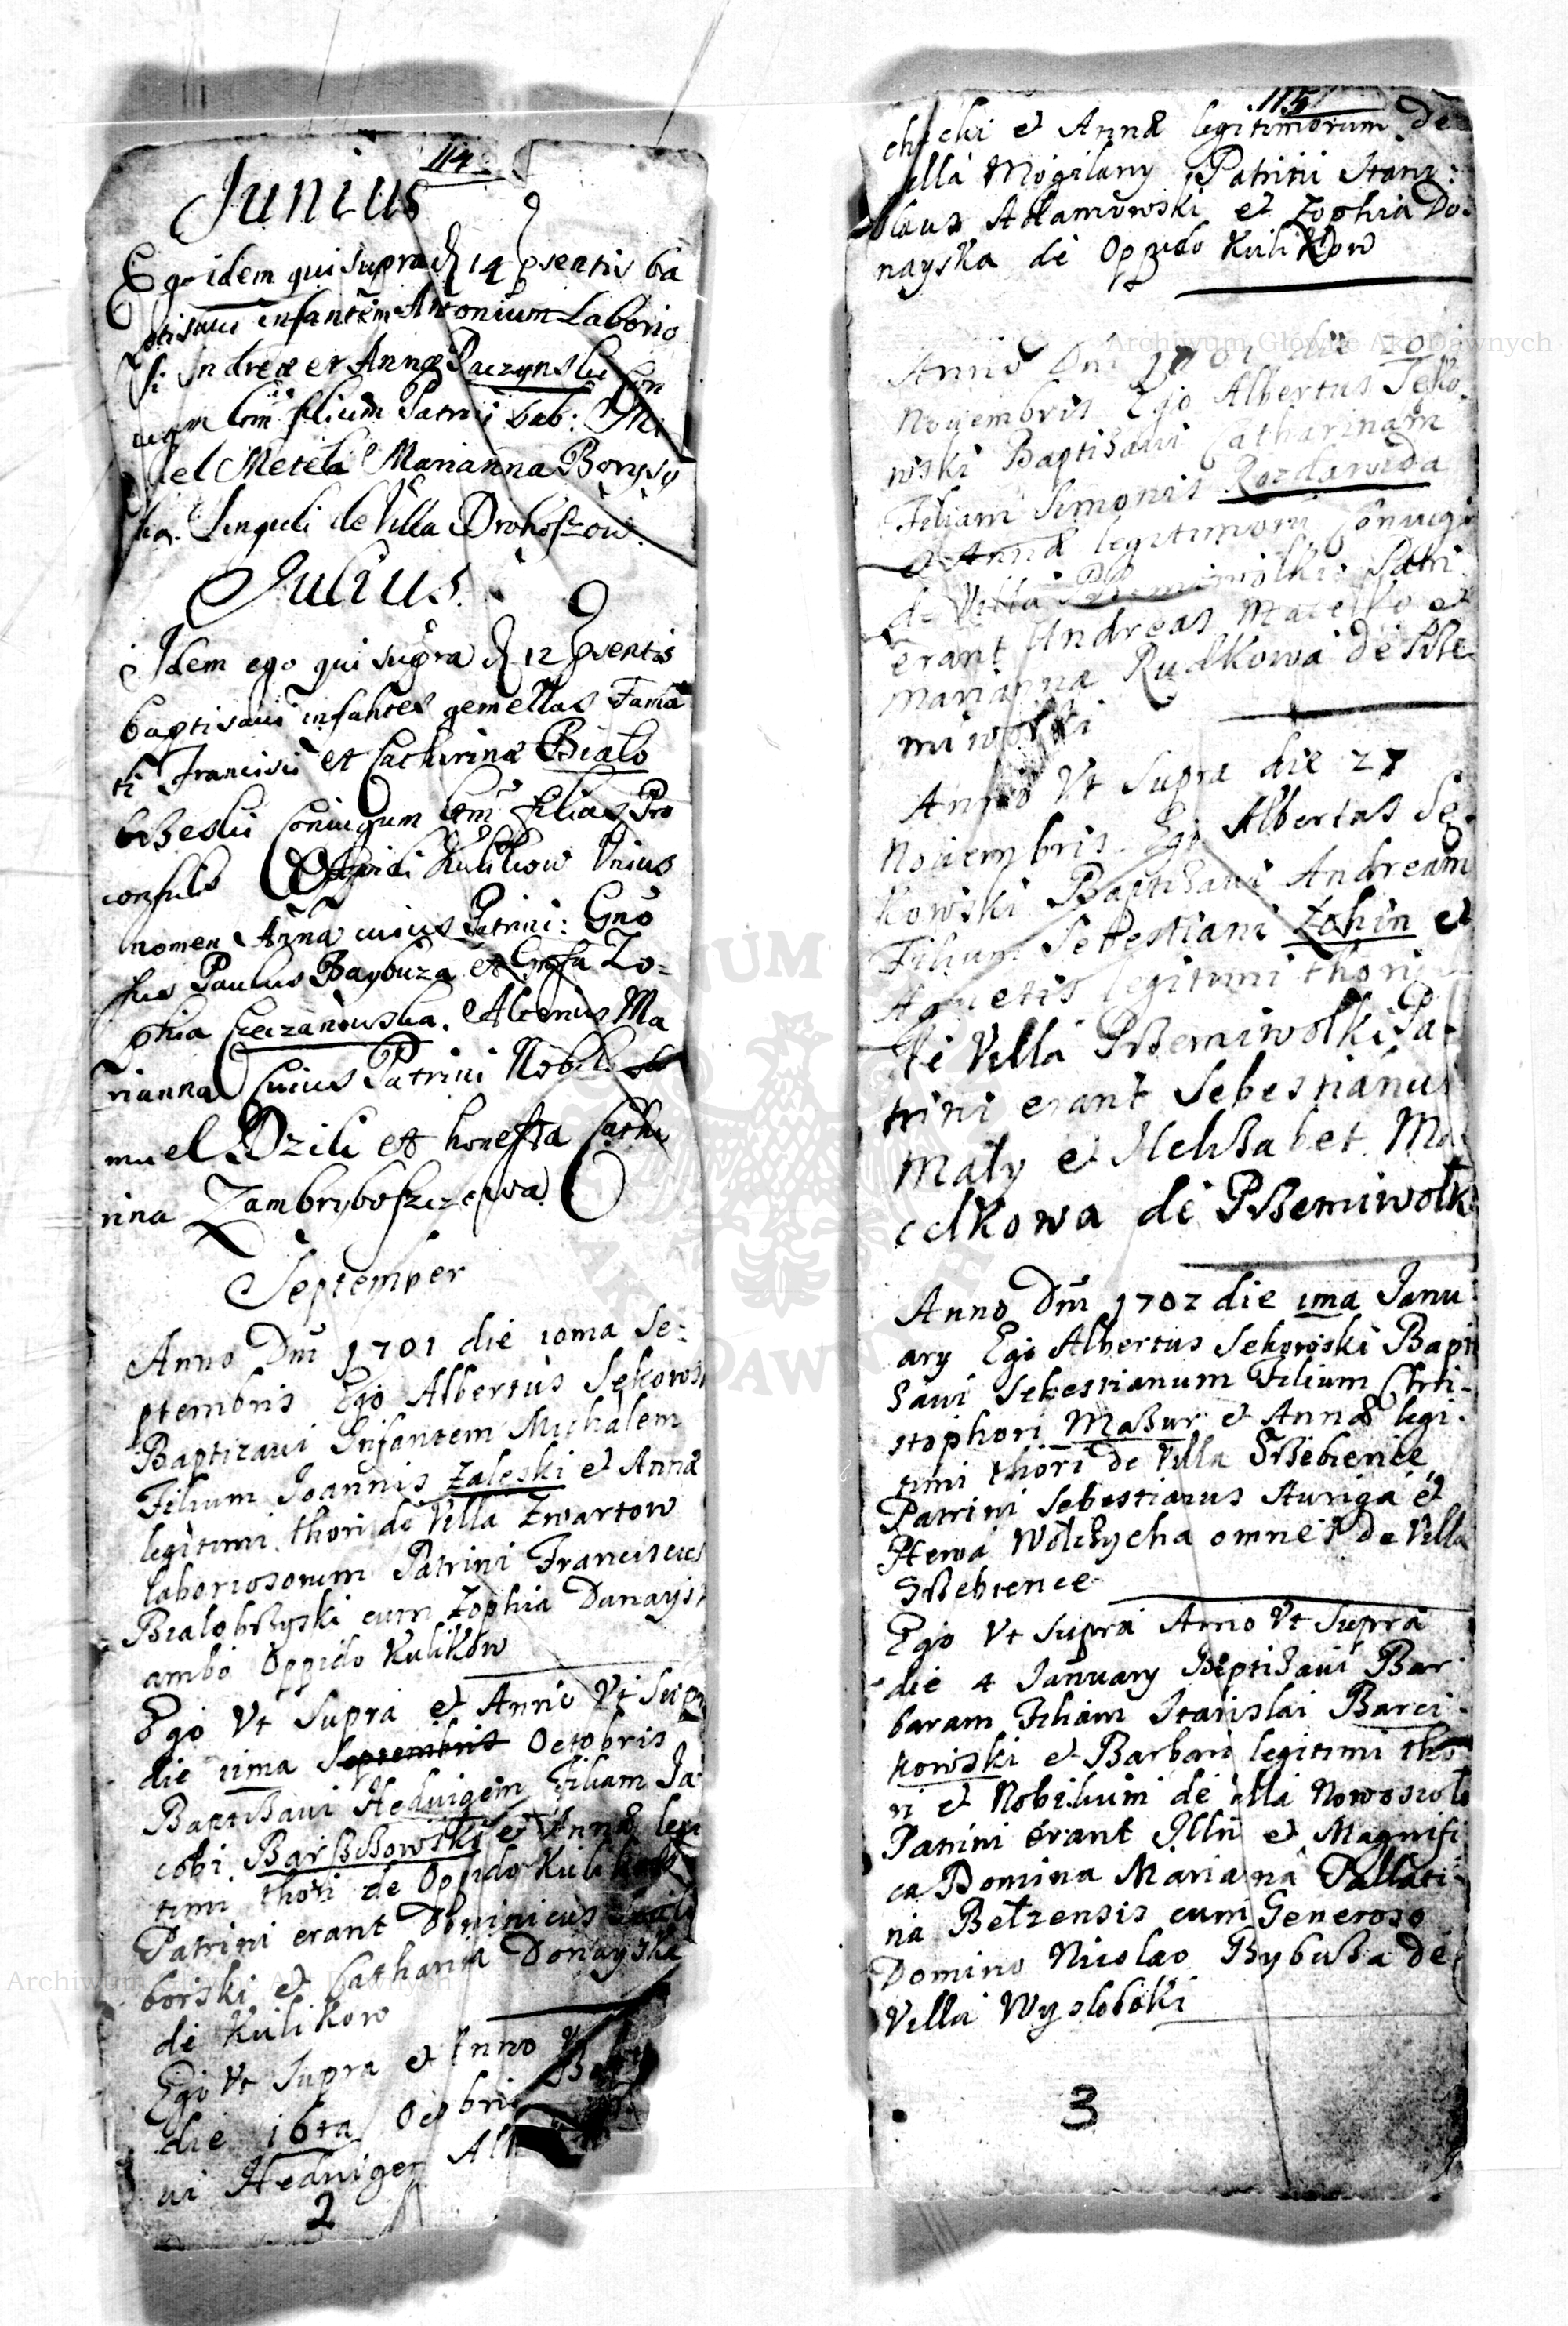 114
Junius
Ego idem qui supra d 14 psentis ba
ptisavi infantem Antonium Laborio
si Andreæ et Annæ Raczynskie Con
iugm ltm filium Patrini Lab: Mi
el Metela Marianna Borysy
ka. Singuli de Villa Drohoszow.
Julius.
Idem ego qui supra d 12 psentis
baptisavi infantes gemellas Fama
ti Francisci et Catherinæ Bialo
bBeskii Coniugum ltm filias Pro
consulis Oppidi Kulikow Unius
nomen Anna cuius Patrini: Gnõ
sus Paulus Baybuza et Gnsa Zo=
phia Czeczanowska. Alterius Ma
rianna Cuius Patrini Nobilis
muel Dzili et honesta Cathe
rina Zambrzyboszczewa
September
Anno Dni 1701 die 10ma Se=
ptembris Ego Albertus Sekows
Baptizaui Infantem Michalem
Filium Joannis Zaleski et Annæ
legitimi thori de Villa Zwartow
laboriosorum Patrini Franciscus
BialobrZyski cum Zophia Danays
ambo Oppido Kulikow
Ego Vt Supra et Anno Vt Supr
die 11ma Septembris Octobris
BaptiBaui Heduigem Filiam Ja
cobi BarBBowski et Annæ legi
timi thori de Oppido Kulikow
Patrini erant Dominicus
borski et Catharina Donayska
de Kulikow
Ego Vt Supra et Anno V
die 16ta Octobris Ba
ui Heduigem Al
2
115
et Annæ legitimorum De
illa Mogilany Patrini Stani:
slaus Adamowski et Zophia Do:
nayska de Oppido Kulikow
Anno Dni 1701 die 20
Nouembris Ego Albertus Seko
wski BaptiSaui Catharinam
Filiam Simonis Rozdawida
et Annæ legitimorum Coniugi
de Villa PrBemiwolki Patri
erant Andreas Matefko et
Marianna Rudkowa de PBe
miwolki
Anno Vt Supra die 27
Nouembris Ego Albertus Se-
kowski BaptiSaui Andream
Filium Sebestiani Zohin et
Agnetis legitimi thori
de Villa PBemiwolki Pa-
trini erant Sebestianus
Maly et HelSabet Ma
celkowa de PBemiwolk
Anno Dni 1702 die 1ma Janu
ary Ego Albertus Sekowski Bapti
Saui Sebestianum Filium Chri-
stophori MaBur et Annæ legi-
timi thori de Villa SBebience
Patrini Sebestianus Auriga et
Ewa WolcZycha omnes de Villa
SBebience
Ego Vt Supra Anno Vt Supra
die 4 January BaptiSaui Bar
baram Filiam Stanislai Barci-
kowski et Barbari legitimi tho
ri et Nobilium de illa Nowosiols
Patrini erant Illn et Magnifi
ca Domina Mariana Pallati-
na Belzensis cum Generoso
Domino Nicolao RybuBa de
Villa Wyslobóki
3